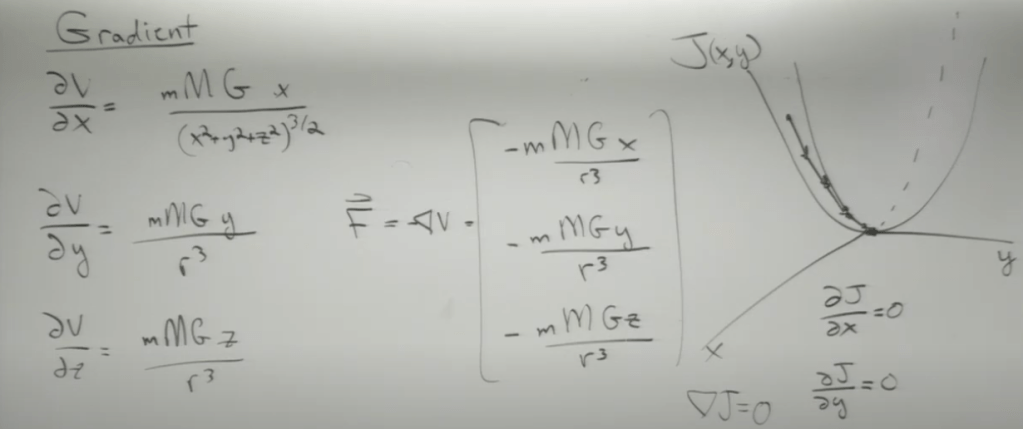 Gradient
∂V/∂x = mMG x/(x²+y²+z²)^3/2
∂V/∂y = mMG y/r³
∂V/∂z = mMG z/r³
F⃗ = ∇V = [ -mMG x/r³
-mMG y/r³
-mMG z/r³ ]
J(x,y)
y
x
∂J/∂x = 0
∂J/∂y = 0
∇J=0